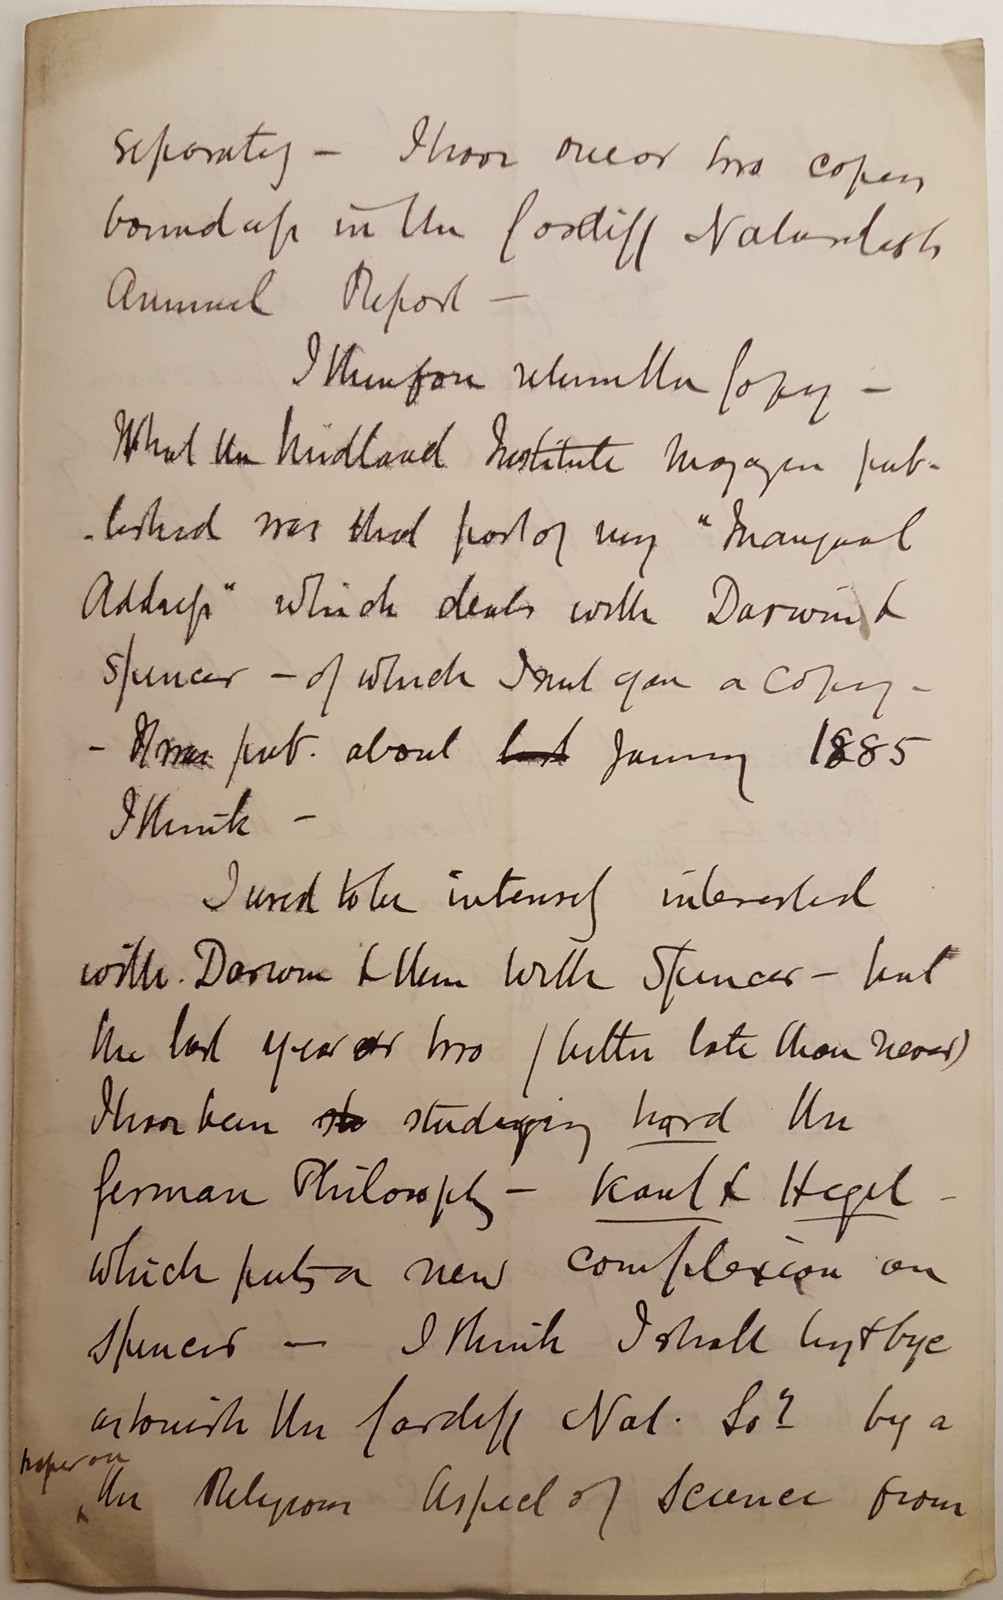 separately - I have one or two copies
bound up in the Cardiff Naturalists
Annual Report -
I therefore return the Copy -
What the Midland Institute Magazine pub-
-lished was that part of my "Inaugural
Address" which deals with Darwin &
Spencer - of which I sent you a Copy -
- It was pub. about last January 1885
I think -
I used to be intensely interested
with Darwin & then with Spencer - but
the last year or two (better late than never)
I have been stu studying hard the
German Philosophy - Kant & Hegel -
which puts a new complexion on
Spencer - I think I shall by & bye
astonish the Cardiff Nat. Socy by a
paper on
the Religious Aspect of Science from